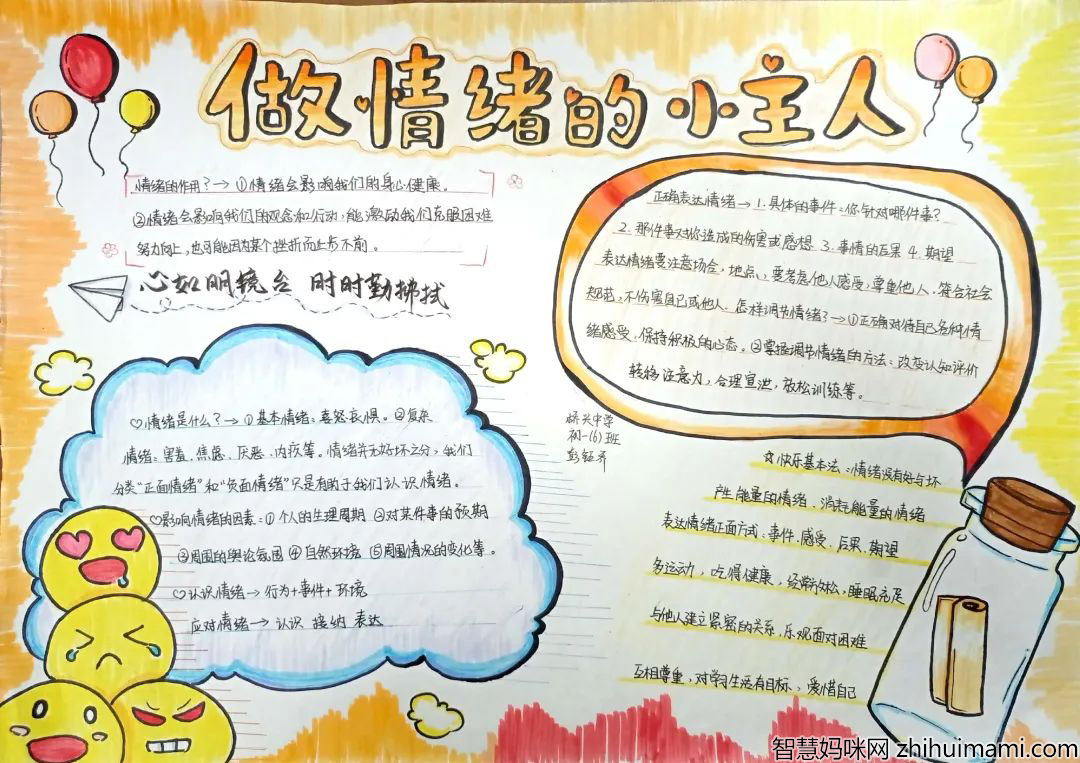 做情绪的小主人
情绪的作用?→①情绪会影响我们的身心健康。
②情绪会影响我们的观念和行动,能激励我们克服困难
努力向上,也可能因为某个挫折而止步不前。
心如明镜台 时时勤拂拭
正确表达情绪→1.具体的事件:你针对哪件事?
2.那件事对你造成的伤害或感想 3.事情的后果 4.期望
表达情绪要注意场合,地点、要考虑他人感受,尊重他人,符合社会
规范,不伤害自己或他人。怎样调节情绪?→①正确对待自己各种情
绪感受,保持积极的心态。②掌握调节情绪的方法:改变认知评价
转移注意力,合理宣泄,放松训练等。
♡情绪是什么?→①基本情绪:喜怒哀惧。②复杂
情绪:害羞、焦虑、厌恶、内疚等。情绪并无好坏之分,我们
分类"正面情绪"和"负面情绪"只是有助于我们认识情绪。
♡影响情绪的因素:①个人的生理周期 ②对某件事的预期
③周围的舆论氛围 ④自然环境 ⑤周围情况的变化等。
♡认识情绪→行为+事件+环境
应对情绪→认识 接纳 表达
桥头中学
初一(6)班
彭钰齐
☆快乐基本法:情绪没有好与坏
产生能量的情绪、消耗能量的情绪
表达情绪正面方式:事件、感受、后果、期望
多运动,吃得健康,经常放松,睡眠充足
与他人建立紧密的关系,乐观面对困难
互相尊重,对学习生活有目标、爱惜自己
智慧妈咪网 zhihuimami.com